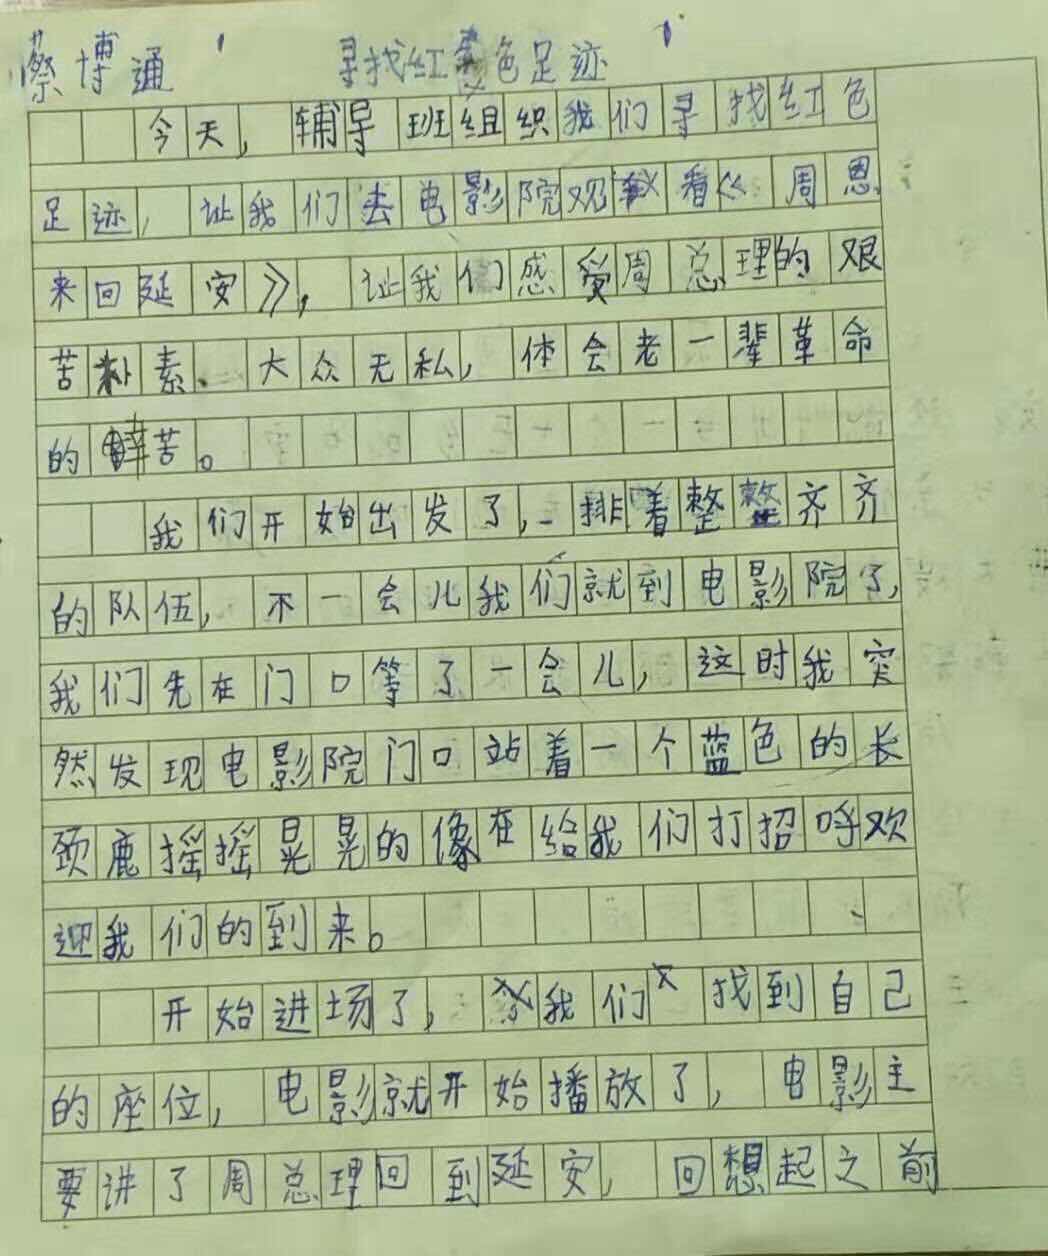 蔡博通 寻找红色足迹
今天，辅导班组织我们寻找红色
足迹，让我们去电影院观看《周恩
来回延安》，让我们感受周总理的艰
苦朴素、大众无私，体会老一辈革命
的辛苦。
我们开始出发了，排着整整齐齐
的队伍，不一会儿我们就到电影院了，
我们先在门口等了一会儿，这时我突
然发现电影院门口站着一个蓝色的长
颈鹿摇摇晃晃的像在给我们打招呼欢
迎我们的到来。
开始进场了，我们找到自己
的座位，电影就开始播放了，电影主
要讲了周总理回到延安，回想起之前